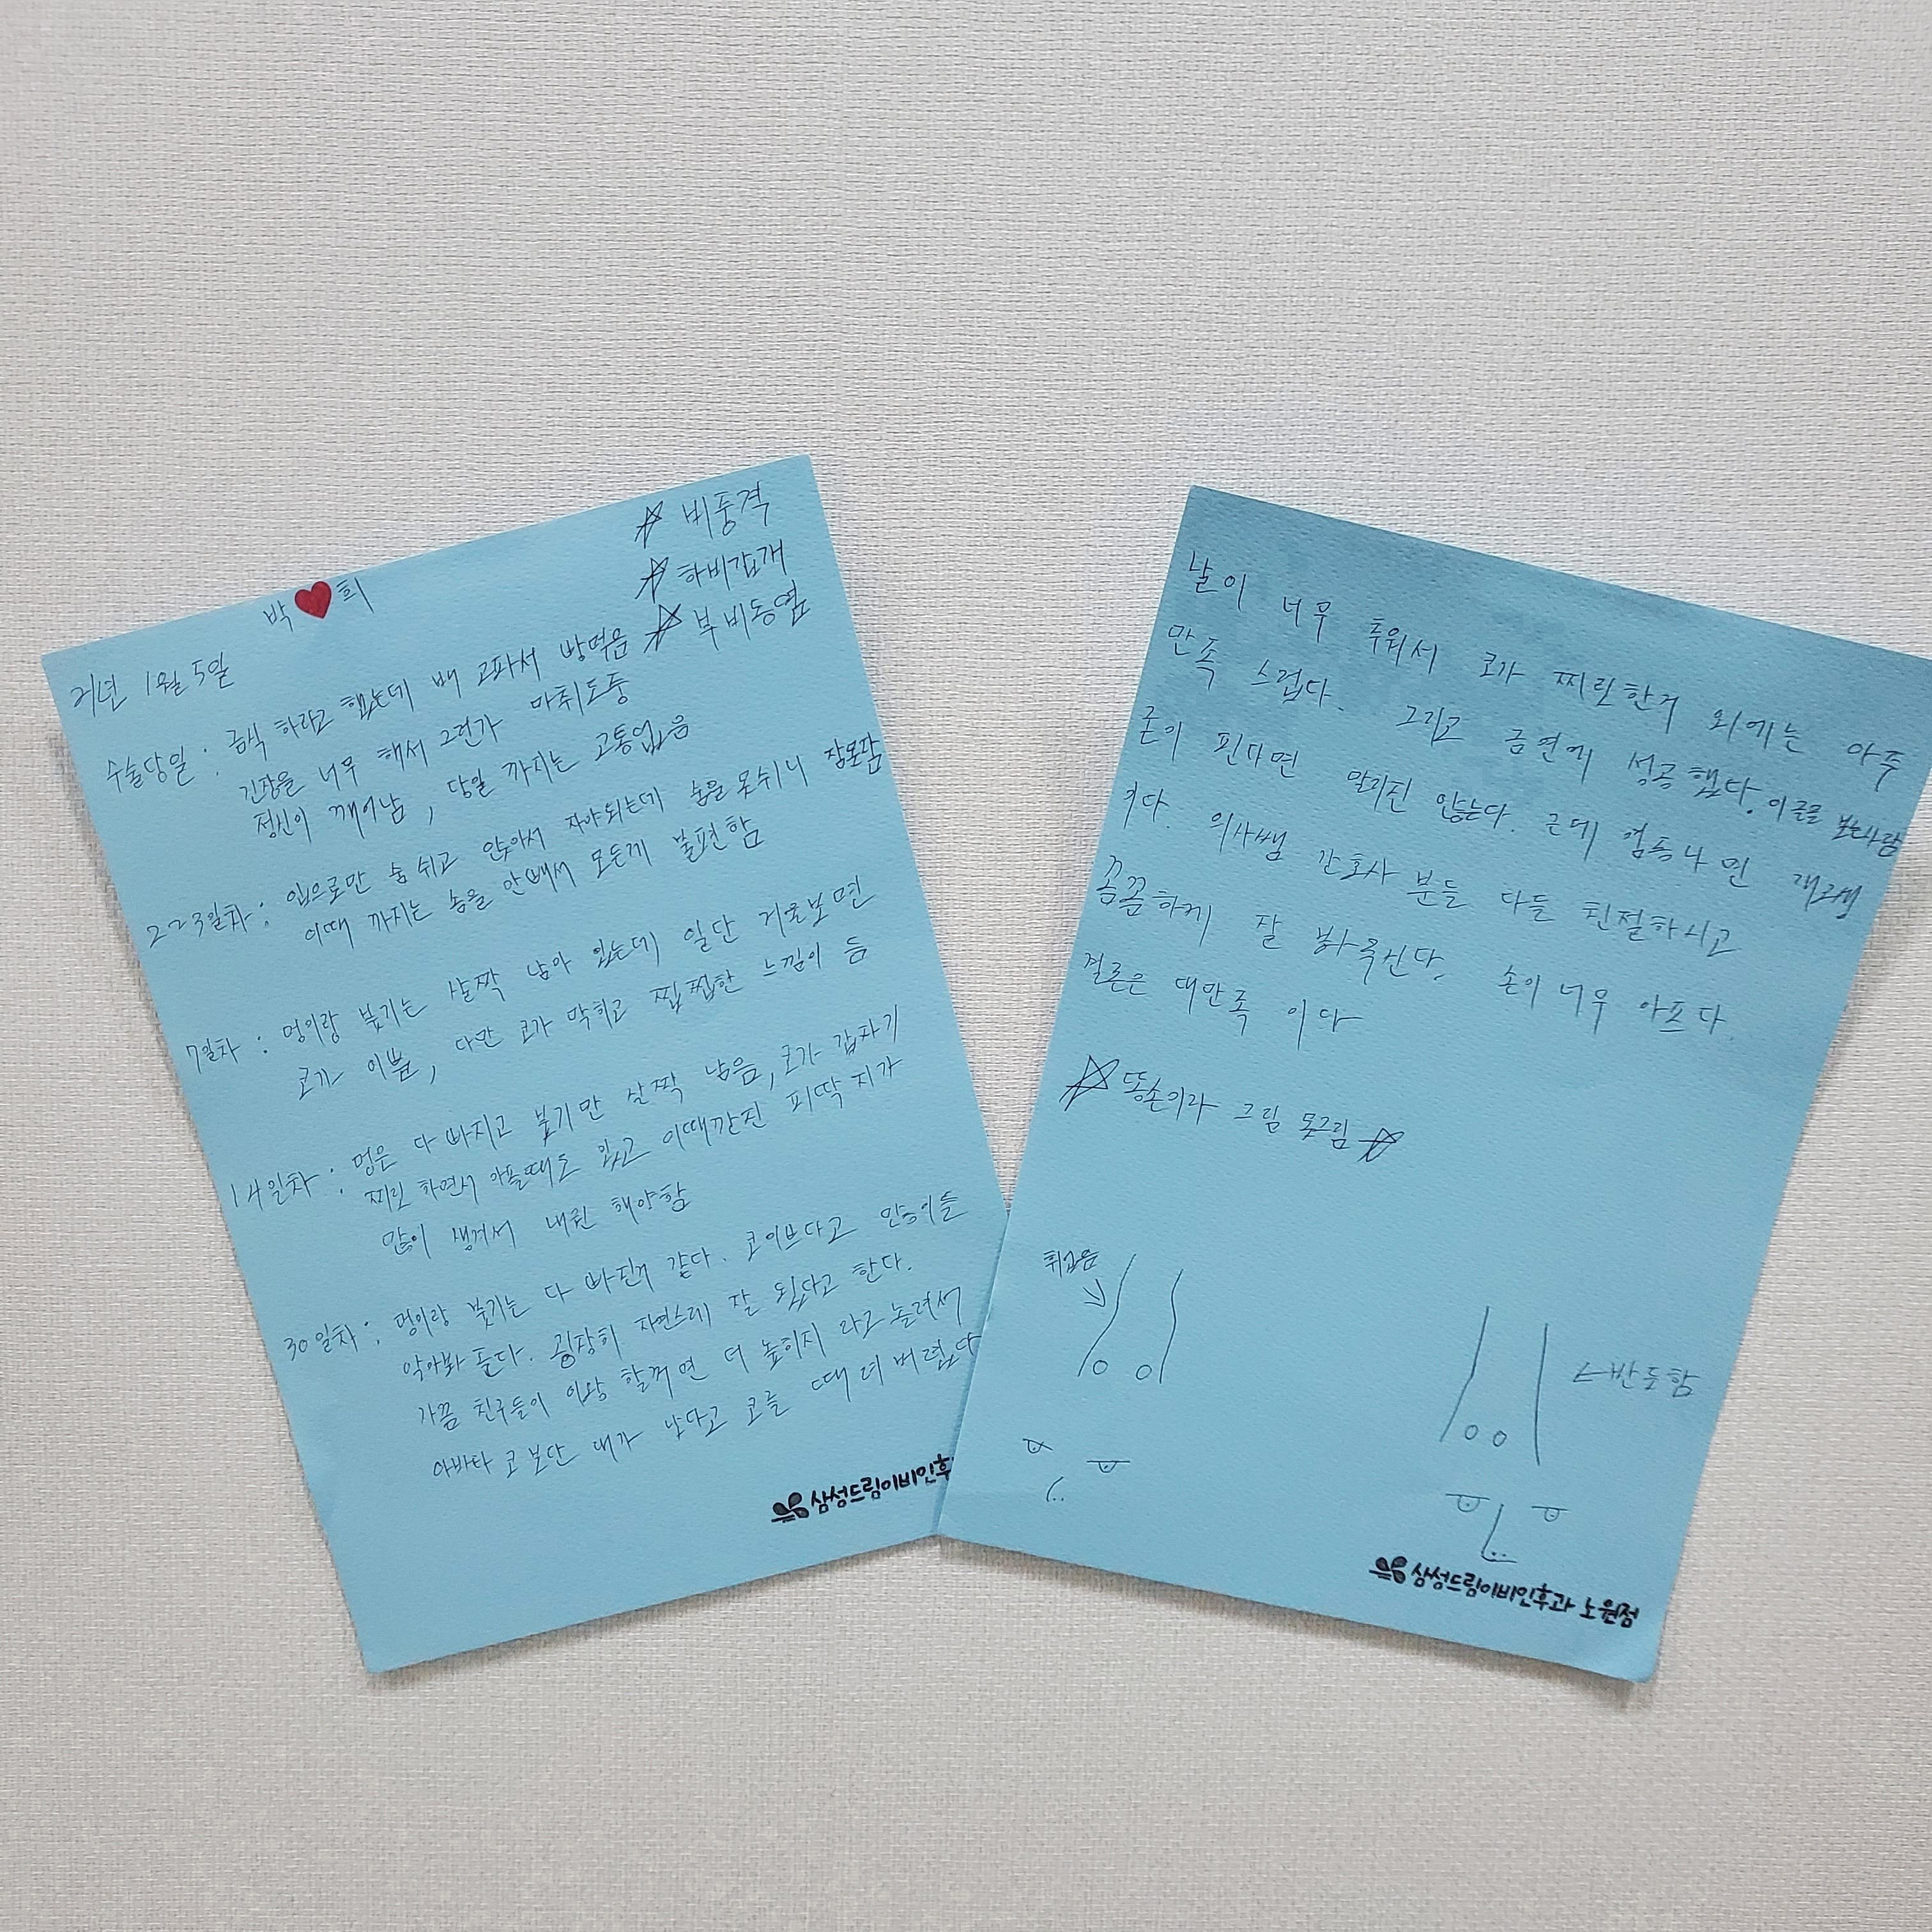 ☆ 비중격
☆ 하비갑개
☆ 부비동염
박♥희
21년 1월 5일
수술당일 : 금식 하라고 했는데 배 고파서 빵먹음
긴장을 너무 해서 그런가 마취도중
정신이 깨어남, 당일 까지는 고통없음
2~3일차 : 입으로만 숨 쉬고 앉아서 자야되는데 숨을 못쉬니 잠못잠
이때 까지는 솜을 안빼서 모든게 불편함
7일차 : 멍이랑 붓기는 살짝 남아 있는데 일단 거울보면
코가 이쁨, 다만 코가 막히고 찝찝한 느낌이 듬
14일차 : 멍은 다 빠지고 붓기만 살짝 남음, 코가 갑자기
찌릿 하면서 아플때도 있고 이때까진 피딱지가
많이 생겨서 내원 해야함
30일차 : 멍이랑 붓기는 다 빠진거 같다. 코이쁘다고 많이들
알아봐 준다. 굉장히 자연스레 잘 됬다고 한다.
가끔 친구들이 이왕 할꺼면 더 높히지 라고 놀려서
아바타 코 보단 내가 낫다고 코를 때려 버렸다
삼성드림이비인후
날이 너무 추워서 코가 찌릿한거 외에는 아주
만족 스럽다. 그리고 금연에 성공했다. 이글을 보는사람
중이 핀다면 말리진 않는다. 근데 걸리면 개고생
이다. 의사쌤 간호사 분들 다들 친절하시고
꼼꼼하게 잘 봐주신다. 손이 너무 아프다.
결론은 대만족 이다
☆ 똥손이라 그림 못그림 ☆
휘었음
←반듯함
삼성드림이비인후과 노원점